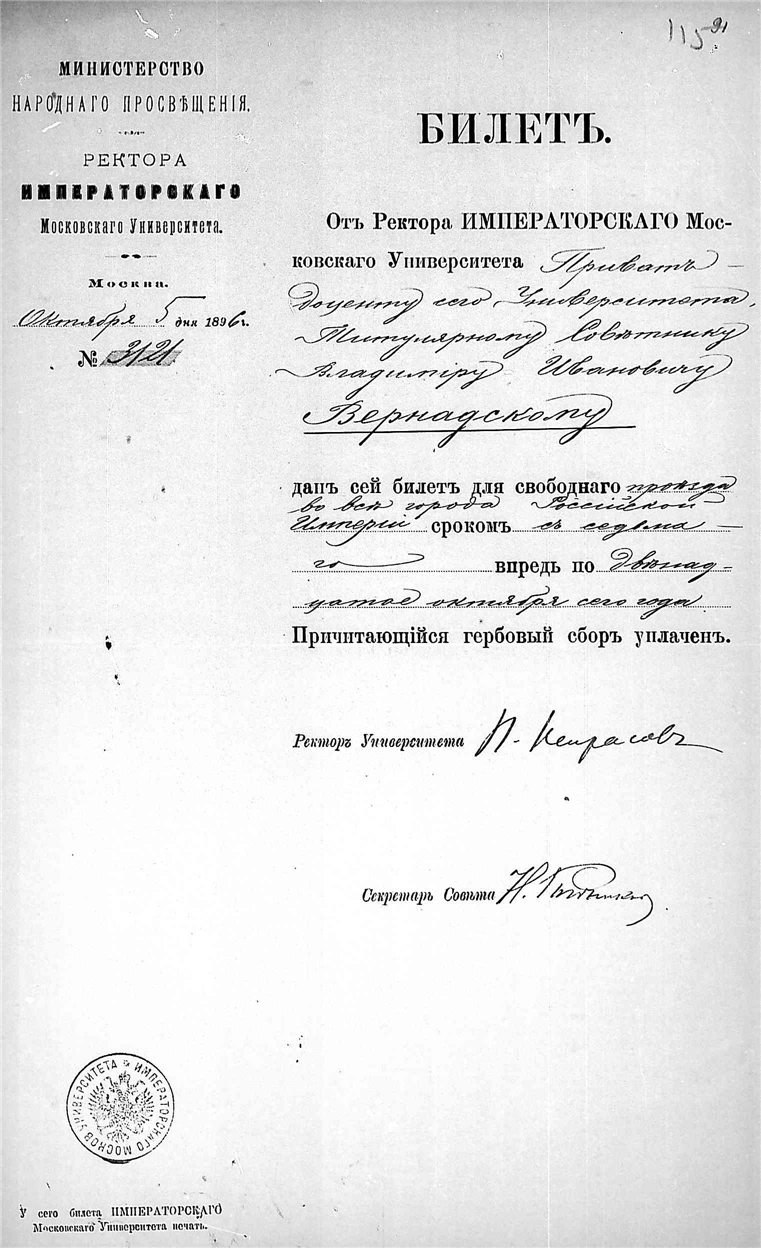 115
91
МИНИСТЕРСТВО
НАРОДНАГО ПРОСВѢЩЕНІЯ.
РЕКТОРА
ИМПЕРАТОРСКАГО
Московскаго Университета.
Москва.
Октября 5 дня 1896 г.
№ 3121
БИЛЕТЪ.
Отъ Ректора ИМПЕРАТОРСКАГО Мос-
ковскаго Университета Приватъ-
доценту сего Университета,
Титулярному Совѣтнику
Владиміру Ивановичу
Вернадскому
данъ сей билетъ для свободнаго проѣзда
во всѣ города Россійской
Имперіи срокомъ съ седьма-
го впредь по двѣнад-
цатое октября сего года
Причитающійся гербовый сборъ уплаченъ.
Ректоръ Университета П. Некрасовъ
Секретарь Совѣта Н.
ИМПЕРАТОРСКАГО МОСКОВ УНИВЕРСИТЕТА
У сего билета ИМПЕРАТОРСКАГО
Московскаго Университета печать.